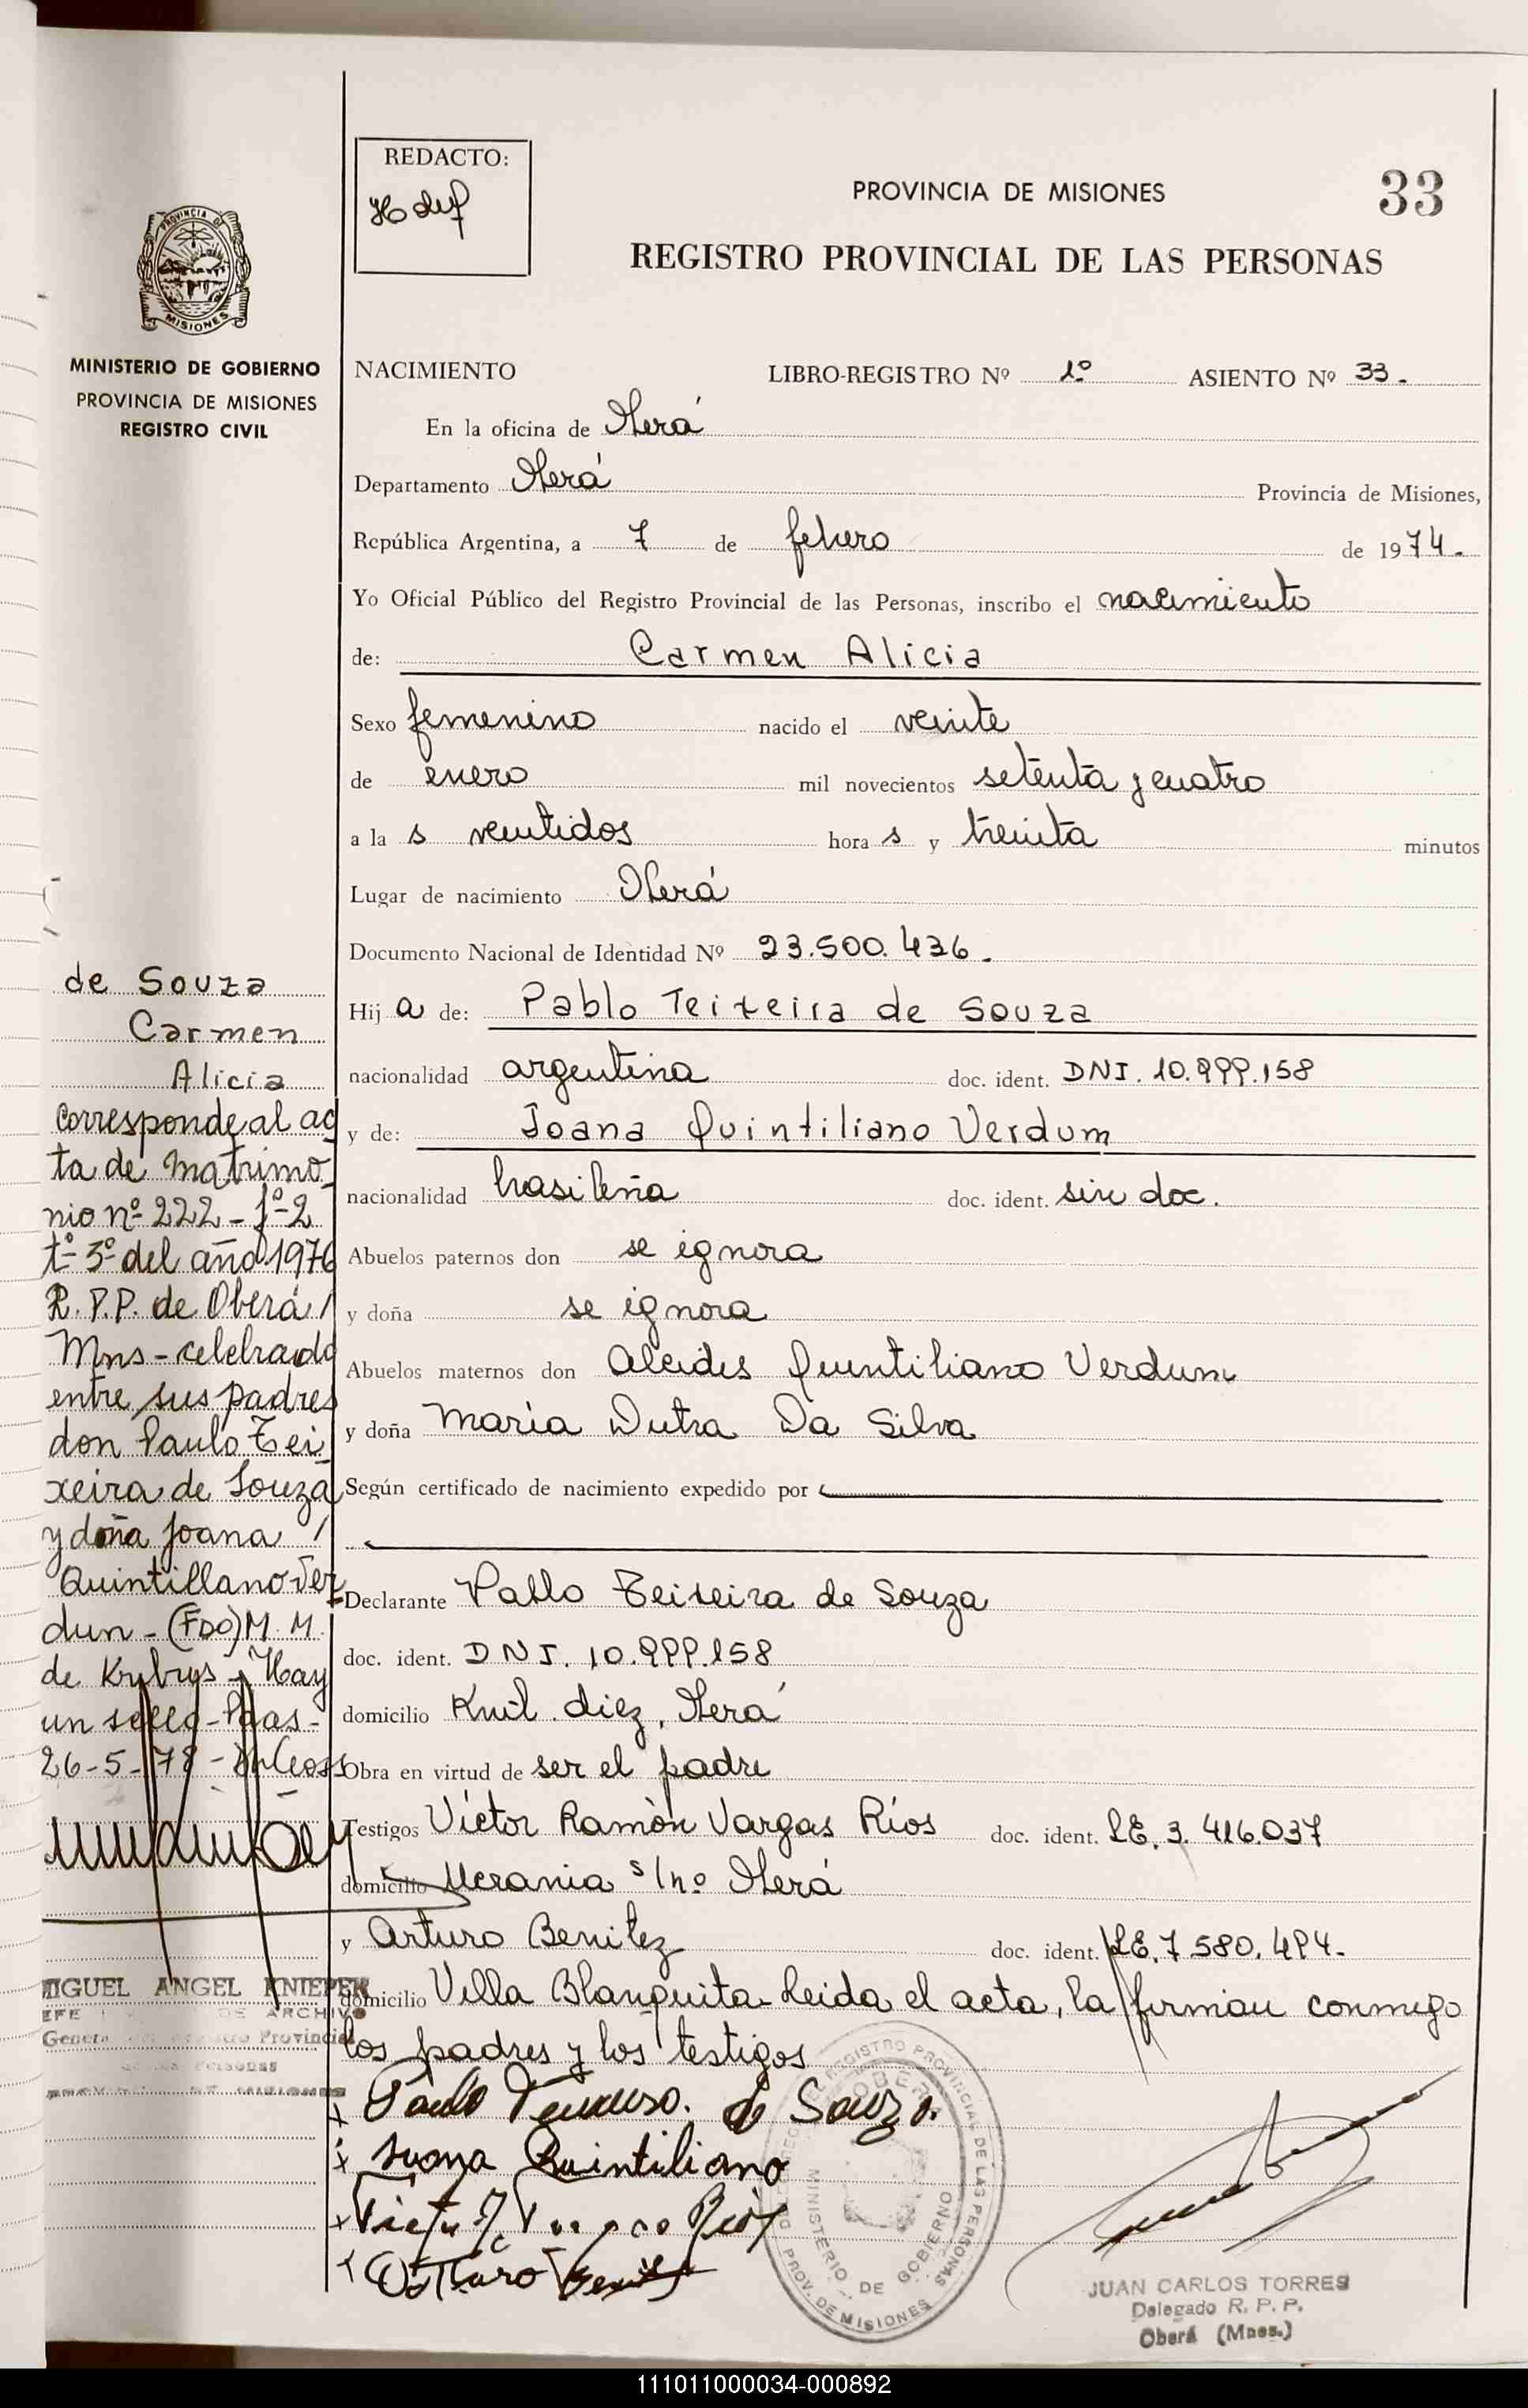 REDACTO:
PROVINCIA DE MISIONES
33
REGISTRO PROVINCIAL DE LAS PERSONAS
PROVINCIA DE
MISIONES
MINISTERIO DE GOBIERNO
PROVINCIA DE MISIONES
REGISTRO CIVIL
NACIMIENTO LIBRO-REGISTRO Nº 1º ASIENTO Nº 33.
En la oficina de Oberá
Departamento Oberá Provincia de Misiones,
República Argentina, a 7 de febrero de 1974.
Yo Oficial Público del Registro Provincial de las Personas, inscribo el nacimiento
de: Carmen Alicia
Sexo femenino nacido el veinte
de enero mil novecientos setenta y cuatro
a la s veintidos hora s y treinta minutos
Lugar de nacimiento Oberá
Documento Nacional de Identidad Nº 23.500.436.
Hij a de: Pablo Teixeira de Souza
nacionalidad argentina doc. ident. DNI. 10.999.158
y de: Joana Quintiliano Verdum
nacionalidad brasileña doc. ident. sin doc.
Abuelos paternos don se ignora
y doña se ignora
Abuelos maternos don Alcides Quintiliano Verdum
y doña María Dutra Da Silva
Según certificado de nacimiento expedido por
Declarante Pablo Teixeira de Souza
doc. ident. DNI. 10.999.158
domicilio Kmt. diez, Oberá
Obra en virtud de ser el padre
Testigos Víctor Ramón Vargas Ríos doc. ident. LE. 3. 416.037
domicilio Ucrania s/nº Oberá
y Arturo Benitez doc. ident. LE. 7.580.494.
domicilio Villa Blanquita- Leida el acta, la firman conmigo
los padres y los testigos
de Souza
Carmen
Alicia
Corresponde al ac
ta de matrimo_
nio nº 222 - fº 2
tº 3º del año 1976
R.P.P. de Oberá/
Mns - celebrado
entre sus padres
don Paulo Tei_
xeira de Souza
y doña Joana /
Quintillano Ver_
dun - (FDO) M. M.
de Krybus - Hay
un sello - Pdas -
26-5-78 -
MIGUEL ANGEL KNIEPER
DE ARCHIVO
Provincial
Personas
x Paulo de Souza.
x Juana Quintiliano
x Victor R. Vargas Rios
x Arturo Benitez
REGISTRO PROVINCIAL DE LAS PERSONAS
OBERA
MINISTERIO DE GOBIERNO
PROV. DE MISIONES
JUAN CARLOS TORRES
Delegado R. P. P.
Oberá (Mnes.)
111011000034-000892